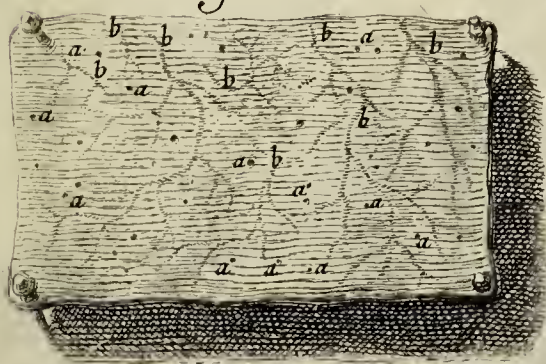 b b b a b
a
b b
a a
b
a b
a
a a
a
a a a